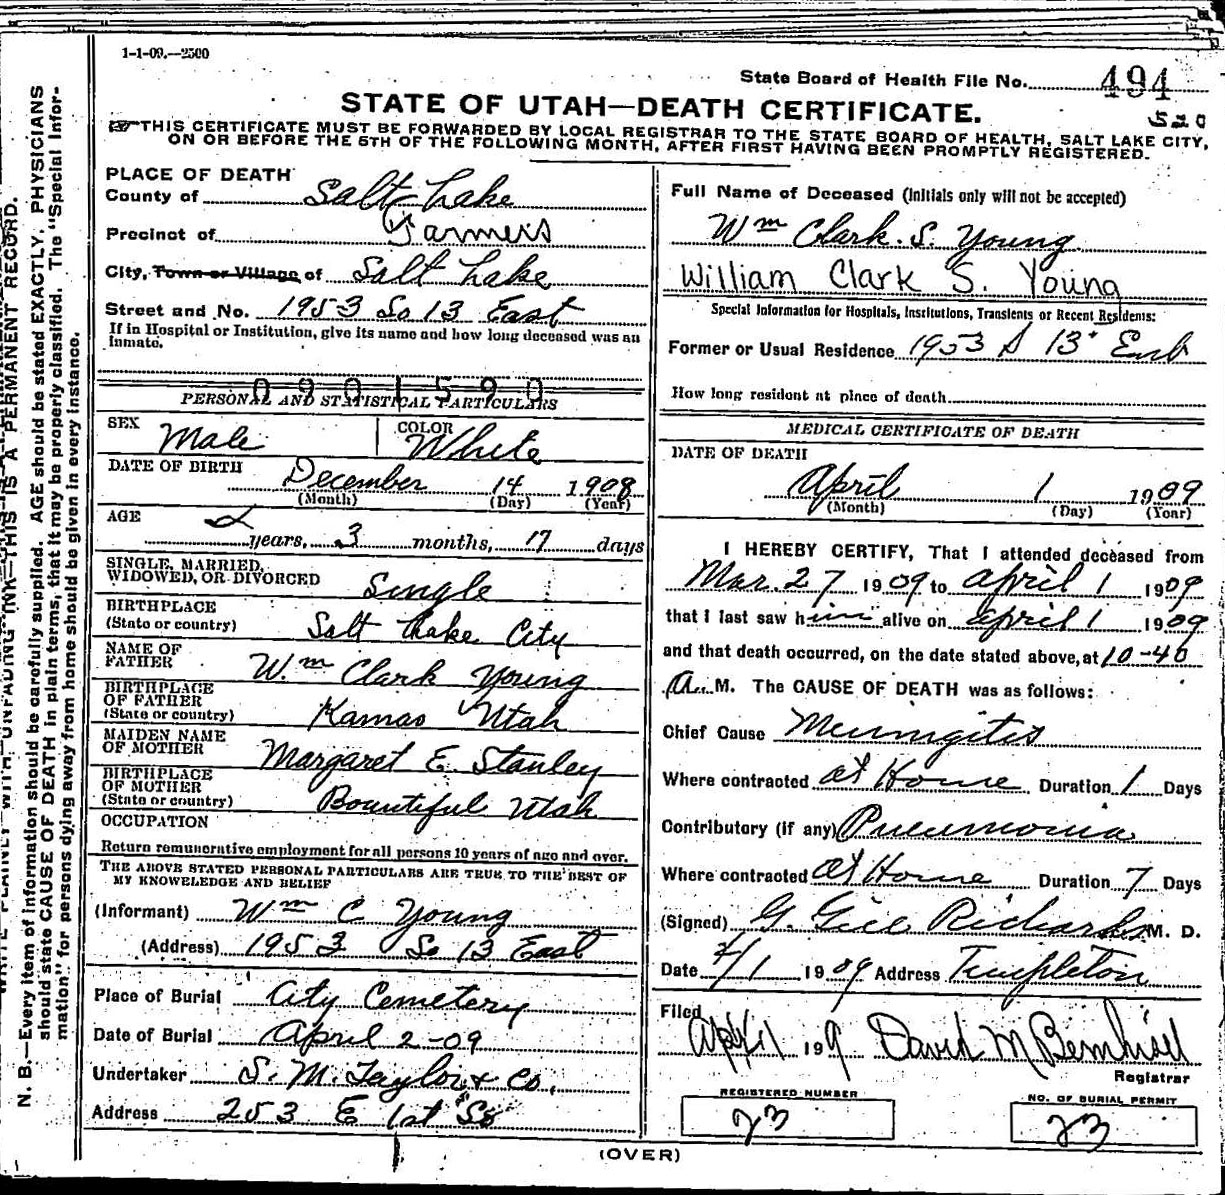 1-1-09.—2500
State Board of Health File No. 494
STATE OF UTAH—DEATH CERTIFICATE.
520
THIS CERTIFICATE MUST BE FORWARDED BY LOCAL REGISTRAR TO THE STATE BOARD OF HEALTH, SALT LAKE CITY,
ON OR BEFORE THE 5TH OF THE FOLLOWING MONTH, AFTER FIRST HAVING BEEN PROMPTLY REGISTERED.
N. B.—Every item of information should be carefully supplied. AGE should be stated EXACTLY. PHYSICIANS
should state CAUSE OF DEATH in plain terms, that it may be properly classified. The "Special Infor-
mation" for persons dying away from home should be given in every instance.
INK—THIS IS A PERMANENT RECORD.
PLACE OF DEATH
County of Salt Lake
Precinct of Farmers
City, Town or Village of Salt Lake
Street and No. 1953 So 13 East
If in Hospital or Institution, give its name and how long deceased was an
Inmate.
0901590
PERSONAL AND STATISTICAL PARTICULARS
SEX Male COLOR White
DATE OF BIRTH December 14 1908
(Month) (Day) (Year)
AGE
years, 3 months, 17 days
SINGLE, MARRIED,
WIDOWED, OR DIVORCED Single
BIRTHPLACE
(State or country) Salt Lake City
NAME OF
FATHER Wm Clark Young
BIRTHPLACE
OF FATHER
(State or country) Kamas Utah
MAIDEN NAME
OF MOTHER Margaret E. Stanley
BIRTHPLACE
OF MOTHER
(State or country) Bountiful Utah
OCCUPATION
Return remunerative employment for all persons 10 years of age and over.
THE ABOVE STATED PERSONAL PARTICULARS ARE TRUE TO THE BEST OF
MY KNOWELEDGE AND BELIEF
(Informant) Wm C Young
(Address) 1953 So 13 East
Place of Burial City Cemetery
Date of Burial April 2-09
Undertaker S. M. Taylor & Co.
Address 253 E 1st So
Full Name of Deceased (Initials only will not be accepted)
Wm Clark. S. Young
William Clark S. Young
Special Information for Hospitals, Institutions, Transients or Recent Residents:
Former or Usual Residence 1953 S 13
How long resident at place of death
MEDICAL CERTIFICATE OF DEATH
DATE OF DEATH
April 1 1909
(Month) (Day) (Year)
I HEREBY CERTIFY, That I attended deceased from
Mar. 27 1909 to April 1 1909
that I last saw him alive on April 1 1909
and that death occurred, on the date stated above, at 10-40
A. M. The CAUSE OF DEATH was as follows:
Chief Cause Meningitis
Where contracted at Home Duration 1 Days
Contributory (if any) Pneumonia
Where contracted at Home Duration 7 Days
(Signed) G. Gill Richards M. D.
Date 4/1 1909 Address Templeton
Filed
April 1 199 David M Bernhisel
Registrar
REGISTERED NUMBER
23
NO. OF BURIAL PERMIT
23
(OVER)